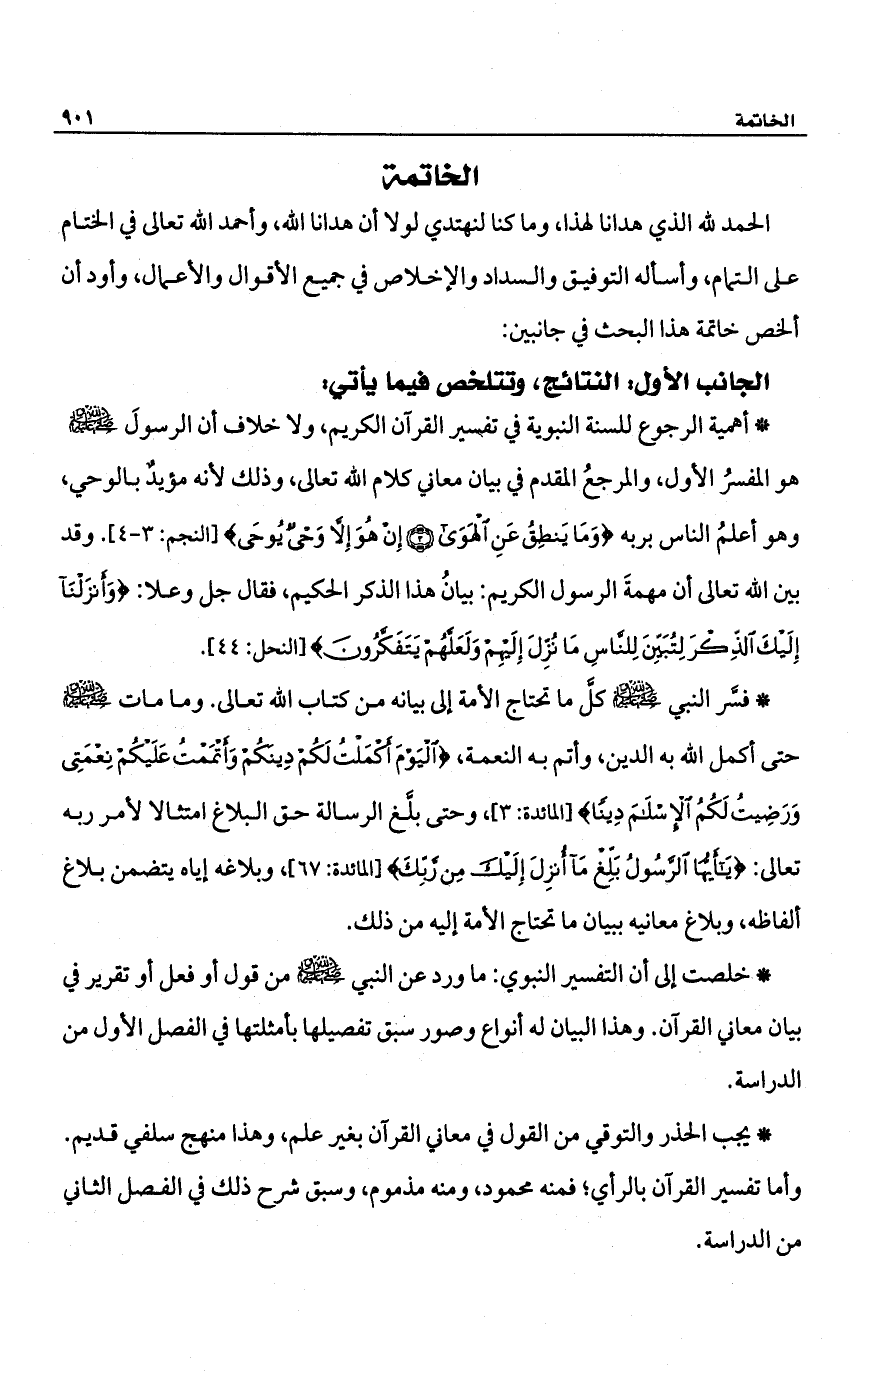 الخاتمة
٩٠١
الخاتمة
الحمد لله الذي هدانا لهذا، وما كنا لنهتدي لولا أن هدانا الله، وأحمد الله تعالى في الختام
على التمام، وأسأله التوفيق والسداد والإخلاص في جميع الأقوال والأعمال، وأود أن
ألخص خاتمة هذا البحث في جانبين:
الجانب الأول: النتائج، وتتلخص فيما يأتي:
* أهمية الرجوع للسنة النبوية في تفسير القرآن الكريم، ولا خلاف أن الرسولَ ﷺ
هو المفسرُ الأول، والمرجعُ المقدم في بيان معاني كلام الله تعالى، وذلك لأنه مؤيدٌ بالوحي،
وهو أعلمُ الناس بربه ﴿وَمَا يَنطِقُ عَنِ ٱلْهَوَىٰٓ ۝٣ إِنْ هُوَ إِلَّا وَحْىٌ يُوحَى﴾ [النجم: ٣-٤]. وقد
بين الله تعالى أن مهمةَ الرسول الكريم: بيانُ هذا الذكر الحكيم، فقال جل وعلا: ﴿وَأَنزَلْنَآ
إِلَيْكَ ٱلذِّكْرَ لِتُبَيِّنَ لِلنَّاسِ مَا نُزِّلَ إِلَيْهِمْ وَلَعَلَّهُمْ يَتَفَكَّرُونَ﴾ [النحل: ٤٤].
* فسَّر النبي ﷺ كلَّ ما تحتاج الأمة إلى بيانه من كتاب الله تعالى. وما مات ﷺ
حتى أكمل الله به الدين، وأتم به النعمة، ﴿ٱلْيَوْمَ أَكْمَلْتُ لَكُمْ دِينَكُمْ وَأَتْمَمْتُ عَلَيْكُمْ نِعْمَتِى
وَرَضِيتُ لَكُمُ ٱلْإِسْلَٰمَ دِينًا﴾ [المائدة: ٣]، وحتى بلَّغ الرسالة حق البلاغ امتثالا لأمر ربه
تعالى: ﴿يَٰٓأَيُّهَا ٱلرَّسُولُ بَلِّغْ مَآ أُنزِلَ إِلَيْكَ مِن رَّبِّكَ﴾ [المائدة: ٦٧]، وبلاغه إياه يتضمن بلاغ
ألفاظه، وبلاغ معانيه ببيان ما تحتاج الأمة إليه من ذلك.
* خلصت إلى أن التفسير النبوي: ما ورد عن النبي ﷺ من قول أو فعل أو تقرير في
بيان معاني القرآن. وهذا البيان له أنواع وصور سبق تفصيلها بأمثلتها في الفصل الأول من
الدراسة.
* يجب الحذر والتوقي من القول في معاني القرآن بغير علم، وهذا منهج سلفي قديم.
وأما تفسير القرآن بالرأي؛ فمنه محمود، ومنه مذموم، وسبق شرح ذلك في الفصل الثاني
من الدراسة.